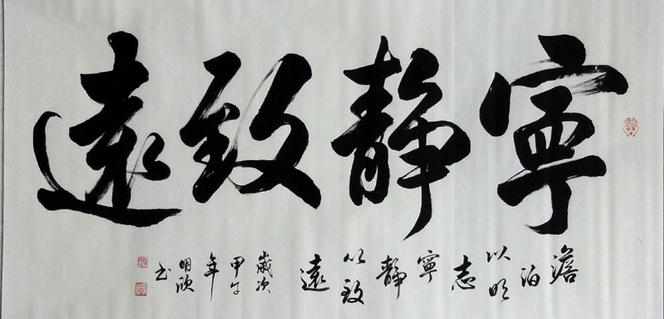 寧靜致遠
澹泊以明志寧靜以致遠
歲次甲午年明欣书